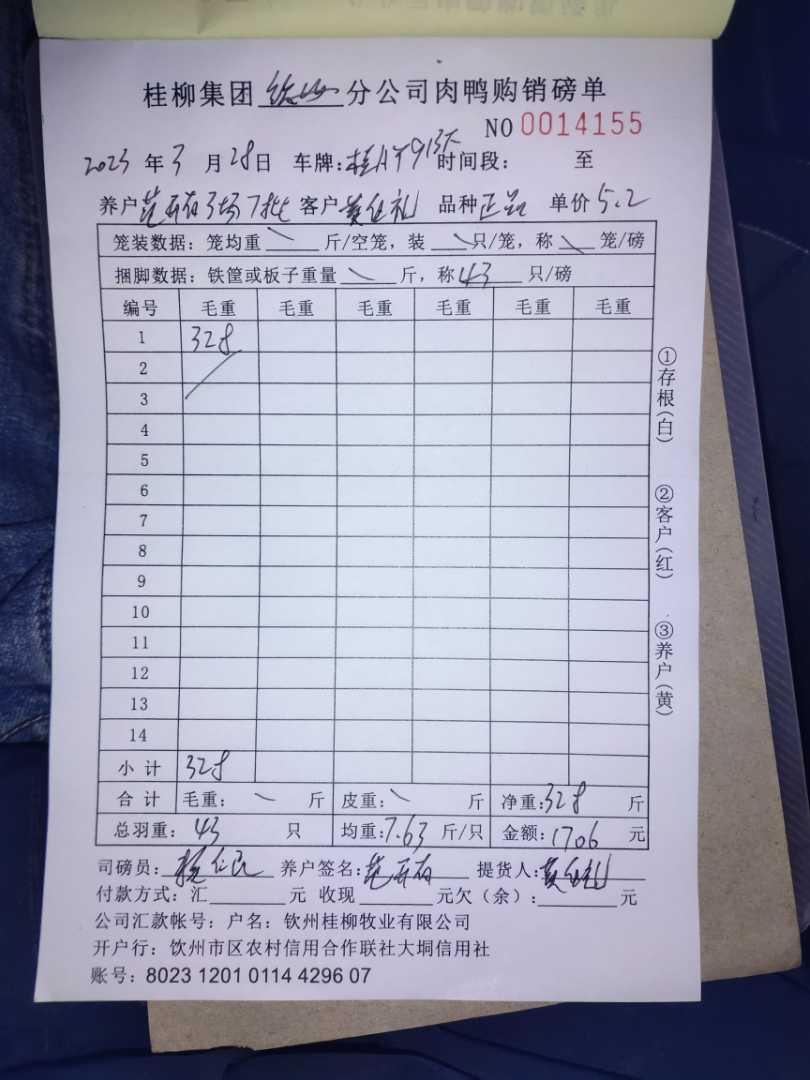 桂柳集团 钦州 分公司肉鸭购销磅单
NO 0014155
2023 年 3 月 28 日 车牌: 桂A 时间段: 至
养户 范开有3场7批 客户 黄仕礼 品种 正品 单价 5.2
笼装数据: 笼均重 斤/空笼, 装 只/笼, 称 笼/磅
捆脚数据: 铁筐或板子重量 斤, 称 43 只/磅
编号 毛重 毛重 毛重 毛重 毛重 毛重
1 328
2
3
4
5
6
7
8
9
10
11
12
13
14
小计 328
合计 毛重: 斤 皮重: 斤 净重: 328 斤
总羽重: 43 只 均重: 7.63 斤/只 金额: 1706 元
司磅员: 杨仁民 养户签名: 范开有 提货人: 黄仕礼
付款方式: 汇 元 收现 元欠(余): 元
公司汇款帐号: 户名: 钦州桂柳牧业有限公司
开户行: 饮州市区农村信用合作联社大垌信用社
账号: 8023 1201 0114 4296 07
①存根(白)
②客户(红)
③养户(黄)